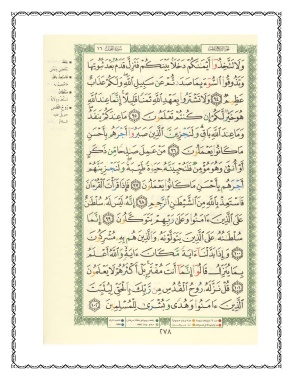 وَلَا تَتَّخِذُوٓا۟ أَيْمَٰنَكُمْ دَخَلًۢا بَيْنَكُمْ فَتَزِلَّ قَدَمٌۢ بَعْدَ ثُبُوتِهَا
وَتَذُوقُوا۟ ٱلسُّوٓءَ بِمَا صَدَدتُّمْ عَن سَبِيلِ ٱللَّهِ وَلَكُمْ عَذَابٌ
عَظِيمٌ ٩٤ وَلَا تَشْتَرُوا۟ بِعَهْدِ ٱللَّهِ ثَمَنًا قَلِيلًا إِنَّمَا عِندَ ٱللَّهِ
هُوَ خَيْرٌ لَّكُمْ إِن كُنتُمْ تَعْلَمُونَ ٩٥ مَا عِندَكُمْ يَنفَدُ
وَمَا عِندَ ٱللَّهِ بَاقٍ وَلَنَجْزِيَنَّ ٱلَّذِينَ صَبَرُوٓا۟ أَجْرَهُم بِأَحْسَنِ
مَا كَانُوا۟ يَعْمَلُونَ ٩٦ مَنْ عَمِلَ صَٰلِحًا مِّن ذَكَرٍ
أَوْ أُنثَىٰ وَهُوَ مُؤْمِنٌ فَلَنُحْيِيَنَّهُۥ حَيَوٰةً طَيِّبَةً وَلَنَجْزِيَنَّهُمْ
أَجْرَهُم بِأَحْسَنِ مَا كَانُوا۟ يَعْمَلُونَ ٩٧ فَإِذَا قَرَأْتَ ٱلْقُرْءَانَ
فَٱسْتَعِذْ بِٱللَّهِ مِنَ ٱلشَّيْطَٰنِ ٱلرَّجِيمِ ٩٨ إِنَّهُۥ لَيْسَ لَهُۥ سُلْطَٰنٌ
عَلَى ٱلَّذِينَ ءَامَنُوا۟ وَعَلَىٰ رَبِّهِمْ يَتَوَكَّلُونَ ٩٩ إِنَّمَا
سُلْطَٰنُهُۥ عَلَى ٱلَّذِينَ يَتَوَلَّوْنَهُۥ وَٱلَّذِينَ هُم بِهِۦ مُشْرِكُونَ
١٠٠ وَإِذَا بَدَّلْنَآ ءَايَةً مَّكَانَ ءَايَةٍ وَٱللَّهُ أَعْلَمُ
بِمَا يُنَزِّلُ قَالُوٓا۟ إِنَّمَآ أَنتَ مُفْتَرٍۭ بَلْ أَكْثَرُهُمْ لَا يَعْلَمُونَ
١٠١ قُلْ نَزَّلَهُۥ رُوحُ ٱلْقُدُسِ مِن رَّبِّكَ بِٱلْحَقِّ لِيُثَبِّتَ
ٱلَّذِينَ ءَامَنُوا۟ وَهُدًى وَبُشْرَىٰ لِلْمُسْلِمِينَ ١٠٢
٢٧٨